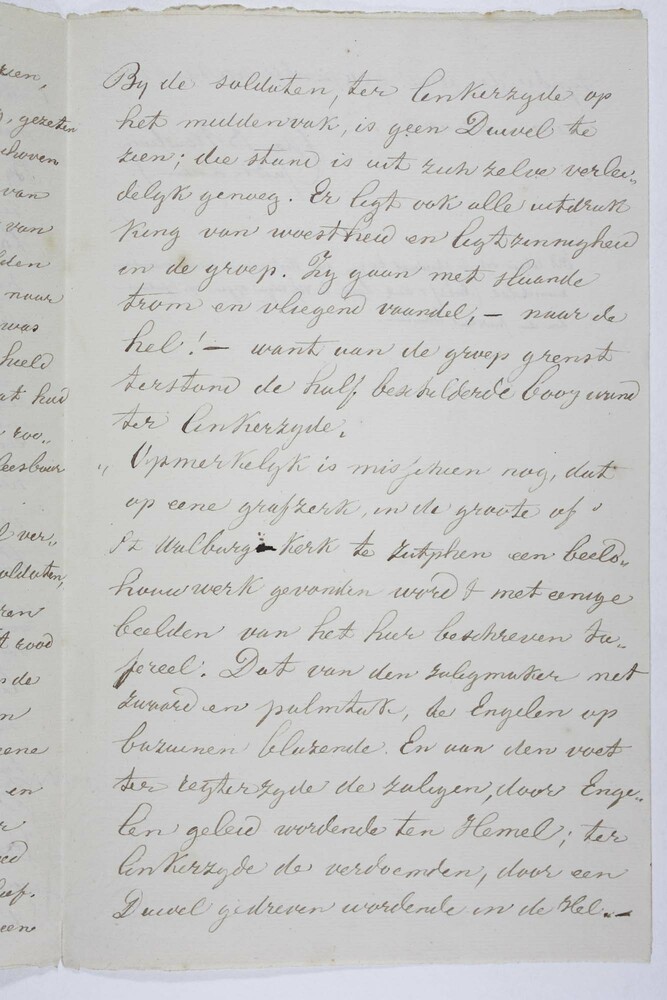 By de soldaten, ter linkerzyde op
het middenvak, is geen Duivel te
zien; die stand is uit zich zelve verlei„
delyk genoeg. Er ligt ook alle uitdruk
king van woestheid en ligtzinnigheid
in de groep. Zy gaan met slaande
trom en vliegend vaandel, — naar de
hel! — want aan de groep grenst
terstond de half beschilderde boogwand
ter linkerzyde.
„ Opmerkelyk is misschien nog, dat
op eene grafzerk, in de groote of
St Walburgskerk te Zutphen een beeld„
houwwerk gevonden wordt met eenige
beelden van het hier beschreven ta„
fereel. Dat van den zaligmaker met
zwaard en palmtak, de Engelen op
bazuinen blazende. En aan den voet
ter regterzyde de zaligen, door Enge„
len geleid wordende ten Hemel; ter
linkerzyde de verdoemden, door een
Duivel gedreven wordende in de Hel. —
zien,
gezeten
hoven
van
van
lden
naar
was
hield
at had
roo„
leesbaar
ver„
soldaten,
ren
rood
de
en